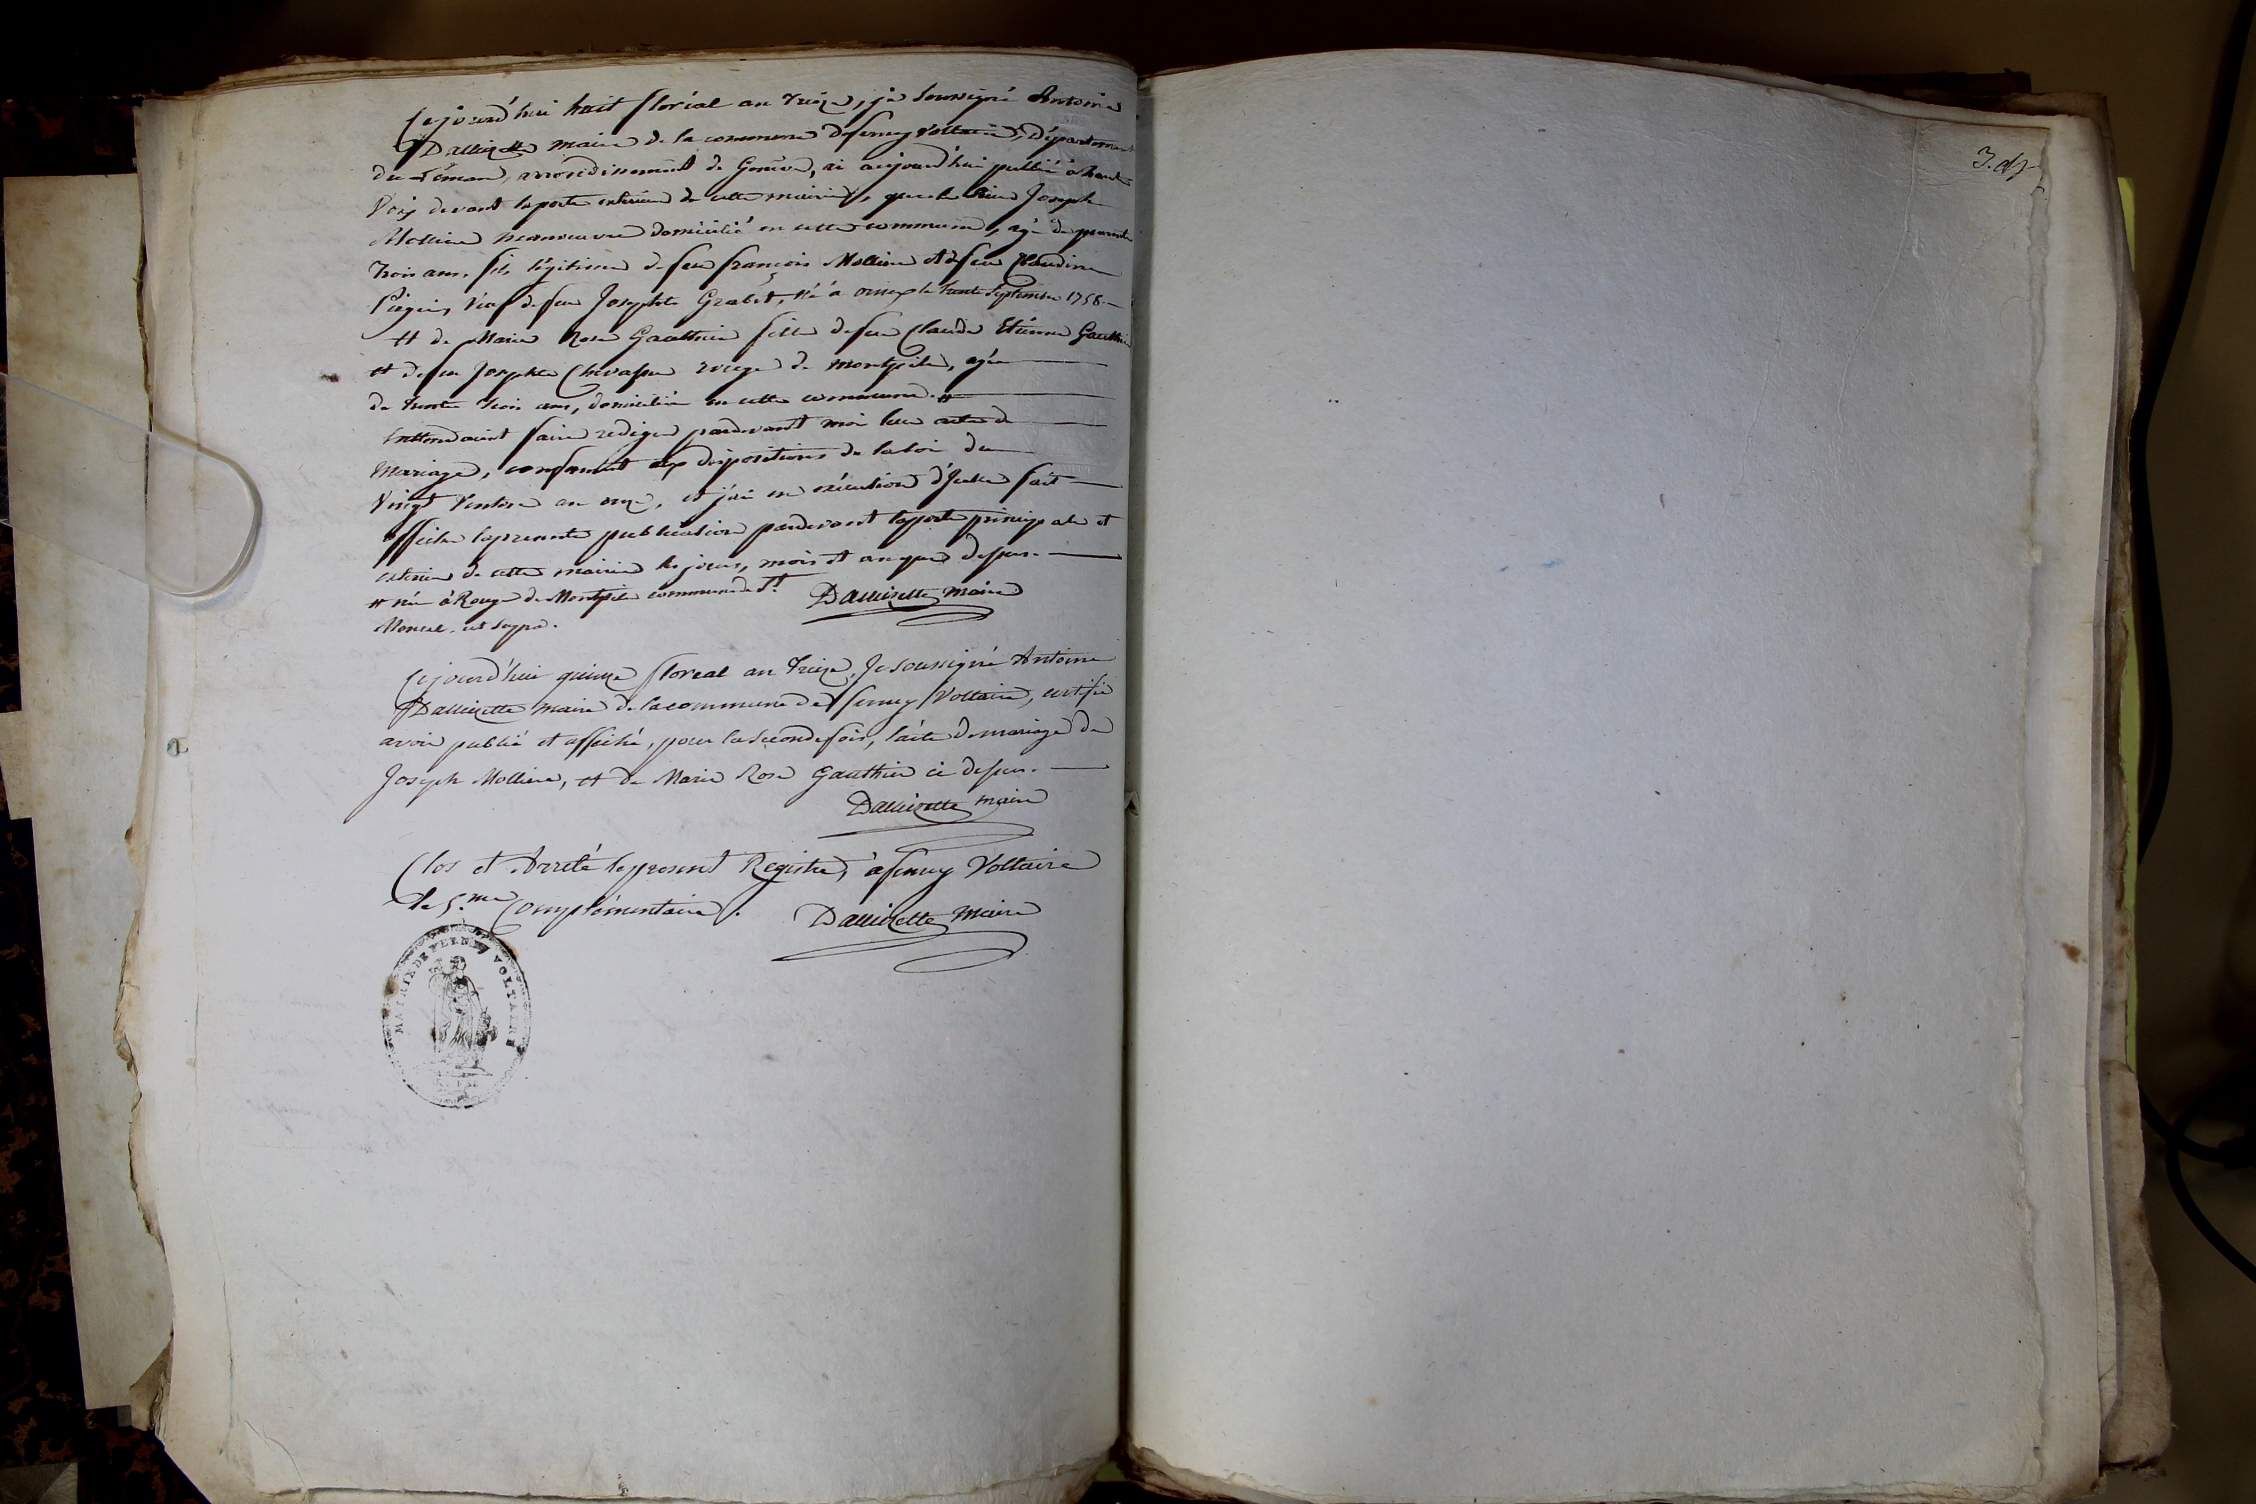 Cejourd'hui huit floréal an treize, je soussigné Antoine
Dallizette maire de la commune de ferney Voltaire, Département
du Léman, arrondissement de Genève, ai aujourd'hui publié à haute
Voix devant la porte exterieure de cette mairie, que le Sieur Joseph
Mollier manoeuvre domicilié en cette commune, agé de quarante
trois ans, fils légitime de feu françois Mollier et de feu Claudine
veuf de feu Josephte Grabit, né à ornex le trente Septembre 1758.
et de Marie Rose Gauthier fille de feu Claude Etienne Gauthier
et de feu Josephte Chevassu rouge de montépile, agée
de trente trois ans, domiciliée en cette commune. #
Entendaient faire rediger pardevant moi leur acte de
Mariage, conformément aux dispositions de la loi du
Vingt Ventose an onze, et j'ai en exécution d'Icelle fait
afficher la presente publication pardevant la porte principale et
exterieure de cette mairie les jour, mois et an que dessus.
# née à Rouge de Montépile commune de St.
ut supra. Dallizette maire
Cejourd'hui quinze floreal an treize, Je soussigné Antoine
Dallizette maire de la commune de ferney Voltaire, certifie
avoir publié et affiché, pour la seconde fois, l'acte de mariage de
Joseph Mollier, et de Marie Rose Gauthier ci dessus.
Dallizette maire
Clos et Arreté le present Registre, à ferney Voltaire
le 5.me Complémentaire. Dallizette Maire
MAIRIE DE FERNEY VOLTAIRE